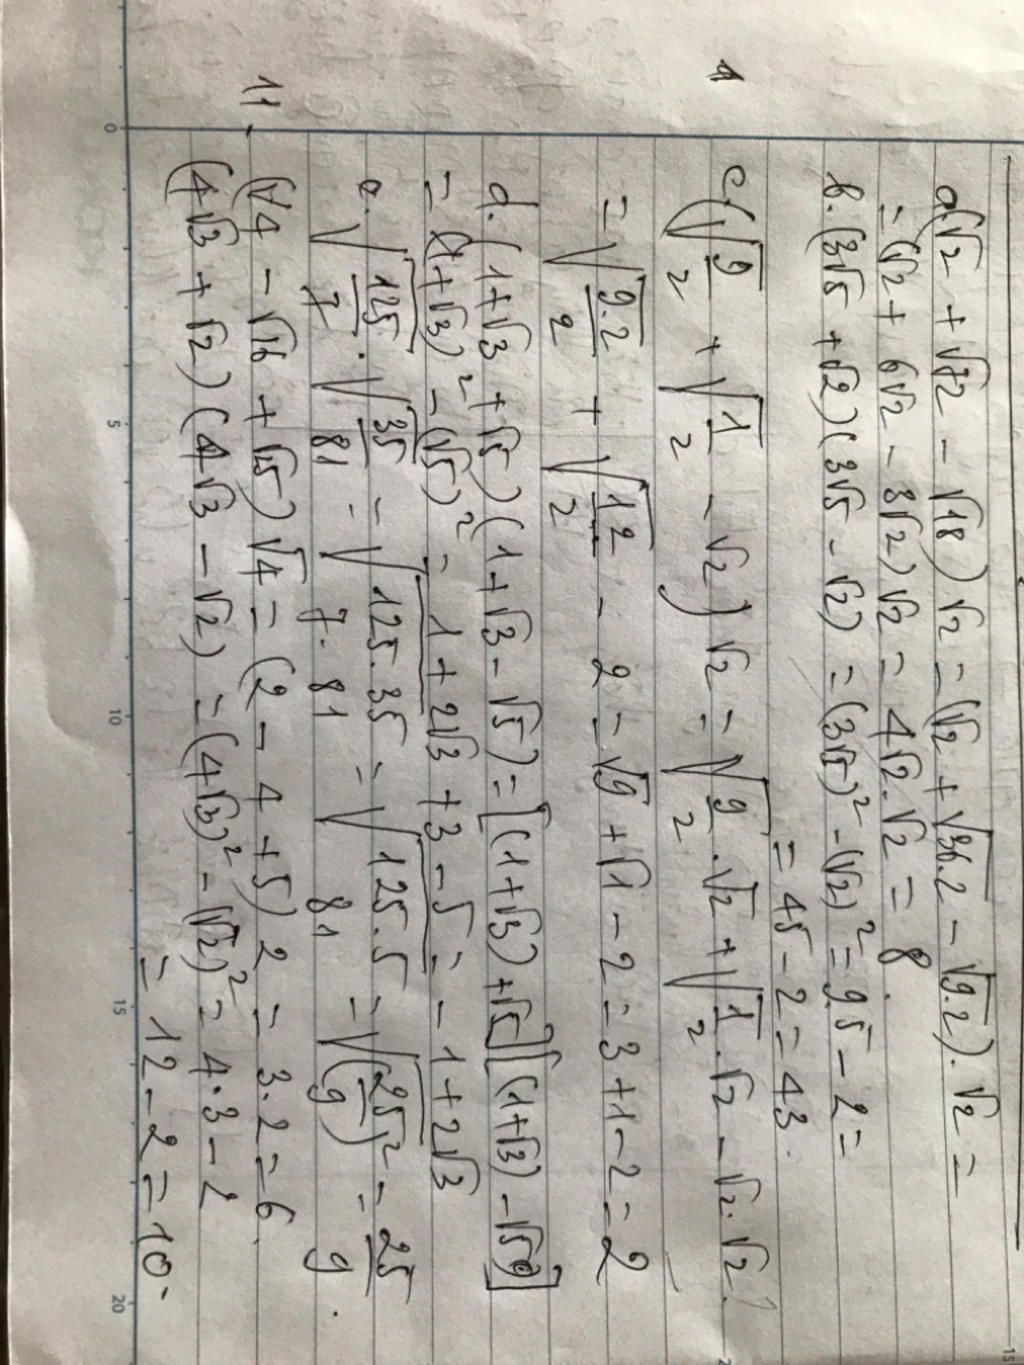 a. (√2 + √72 - √18) √2 = (√2 + √36.2 - √9.2). √2 =
= (√2 + 6√2 - 3√2) √2 = 4√2.√2 = 8.
b. (3√5 + √2)(3√5 - √2) = (3√5)² - (√2)² = 9.5 - 2 =
= 45 - 2 = 43.
c. (√9/2 + √1/2 - √2) √2 = √9/2 . √2 + √1/2 . √2 - √2.√2
= √9.2/2 + √1.2/2 - 2 = √9 + √1 - 2 = 3 + 1 - 2 = 2
d. (1+√3 + √5)(1+√3 - √5) = [(1+√3) + √5][(1+√3) - √5]
= (1+√3)² - (√5)² = 1 + 2√3 + 3 - 5 = - 1 + 2√3
e. √125/7 . √35/81 = √125.35/7.81 = √125.5/81 = √(25/9)² = 25/9.
11 (√4 - √16 + √25) √4 = (2 - 4 + 5) 2 = 3.2 = 6.
(4√3 + √2)(4√3 - √2) = (4√3)² - (√2)² = 4.3 - 2
= 12 - 2 = 10.
0 5 10 15 20